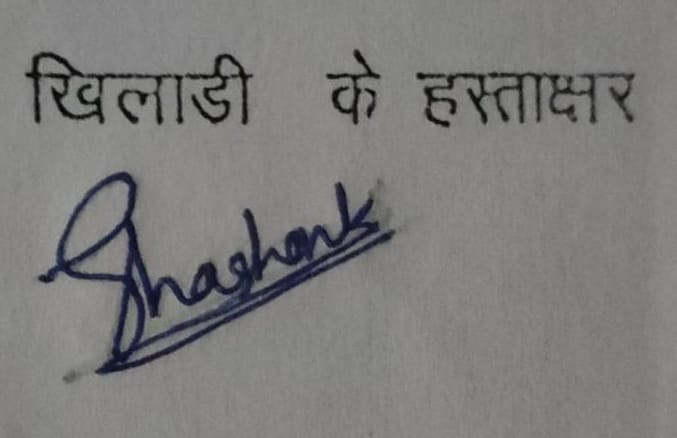 खिलाडी के हस्ताक्षर
Shashank